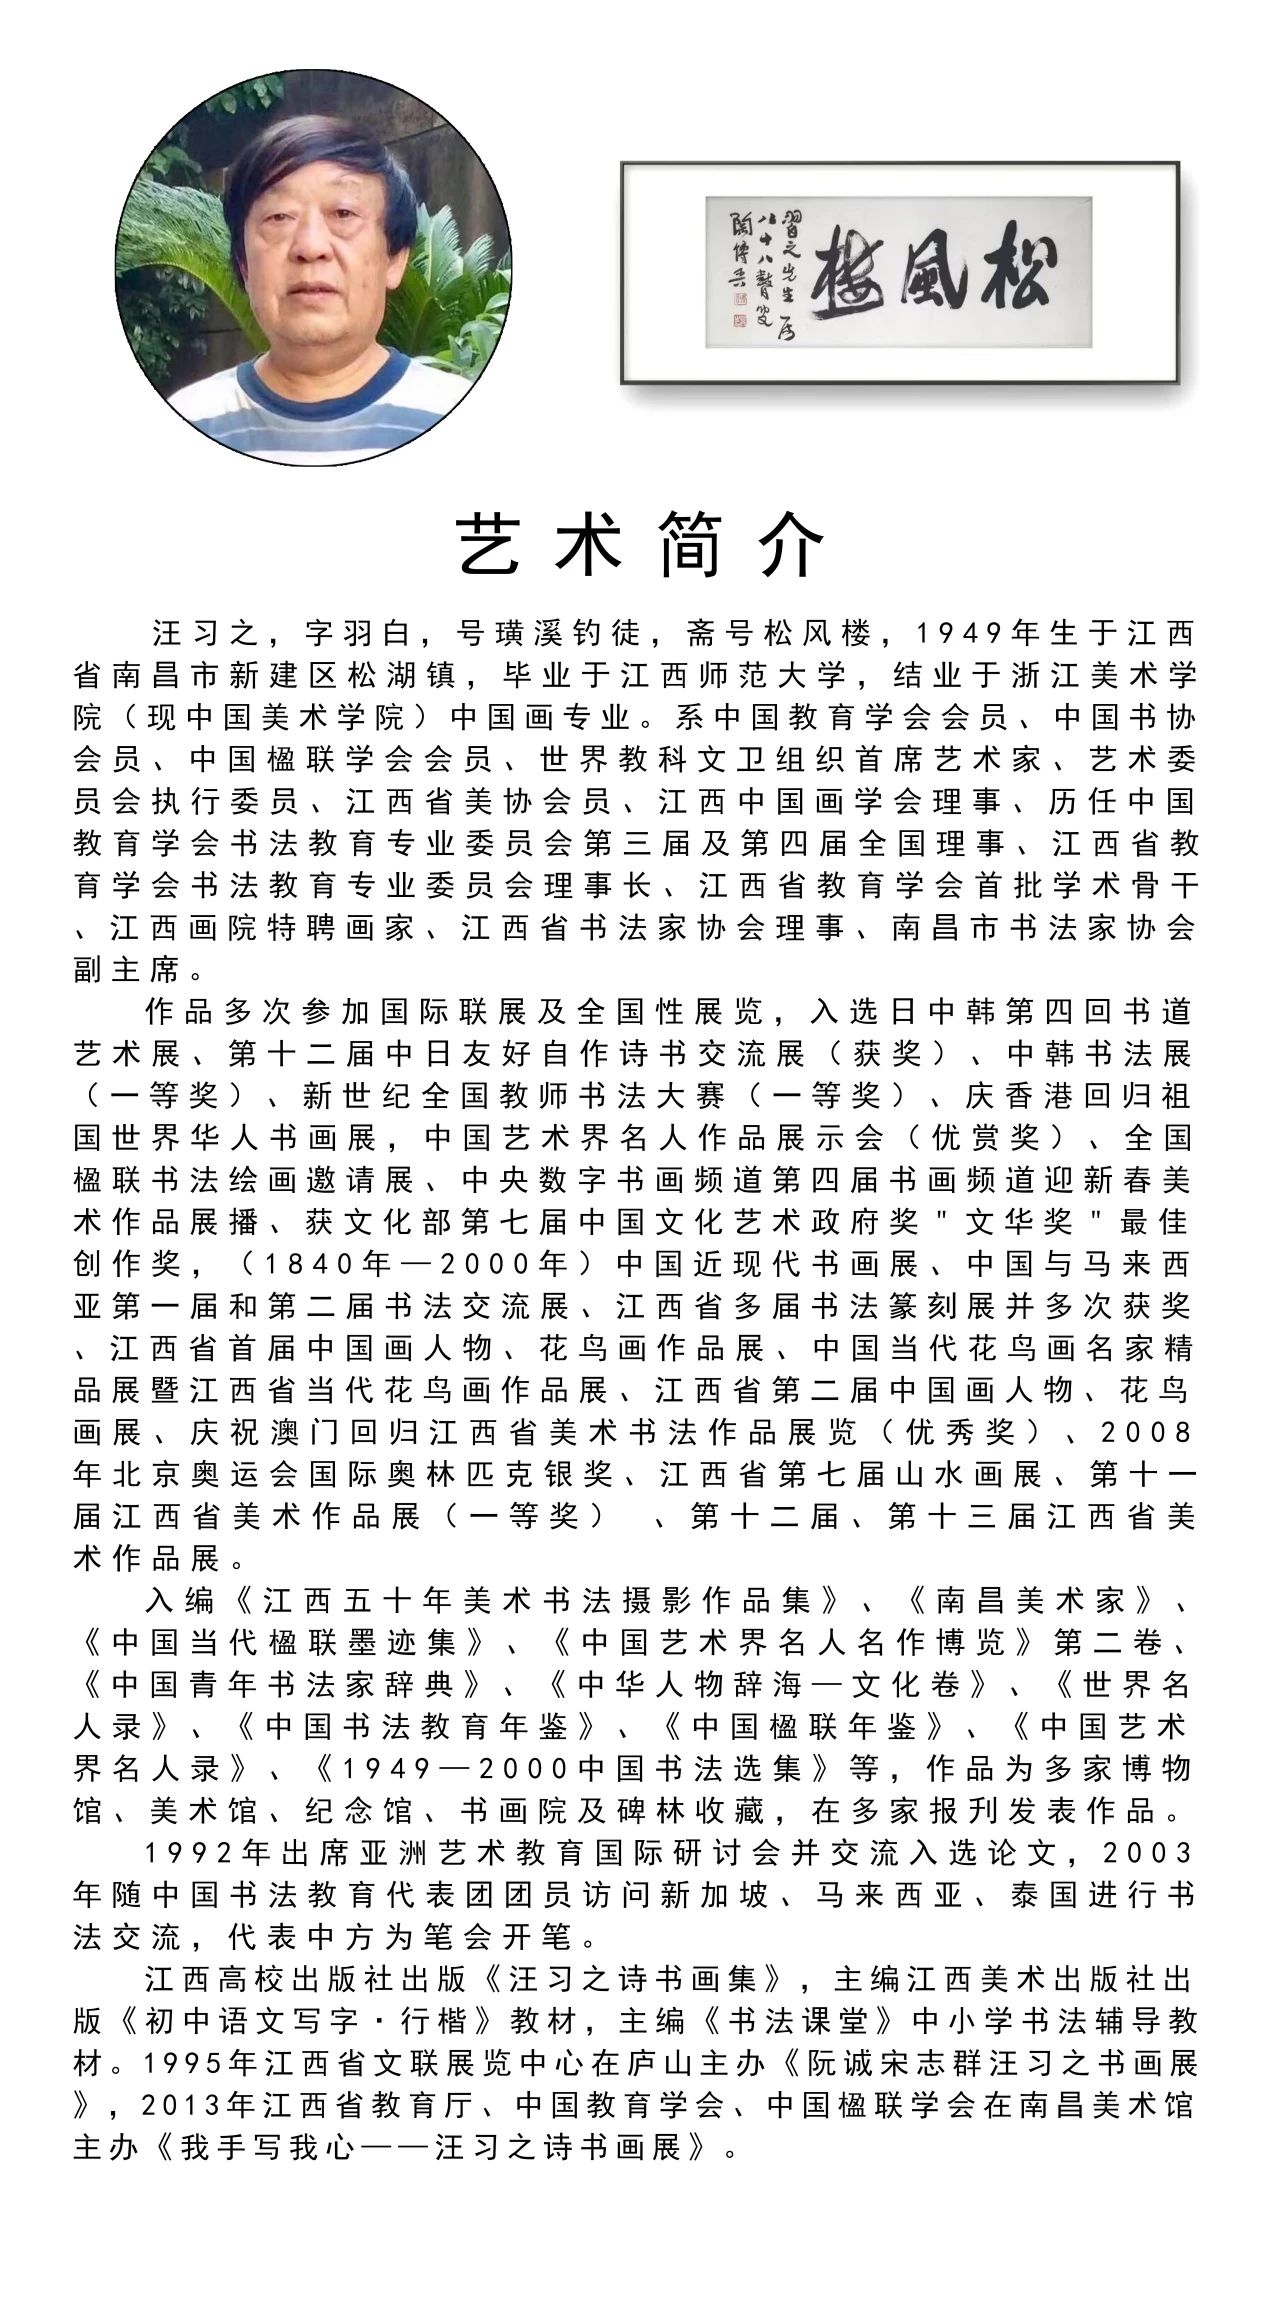 松風楼
習之先生属
八十八聱叟
陶博吾
艺术简介
汪习之，字羽白，号璜溪钓徒，斋号松风楼，1949年生于江西
省南昌市新建区松湖镇，毕业于江西师范大学，结业于浙江美术学
院（现中国美术学院）中国画专业。系中国教育学会会员、中国书协
会员、中国楹联学会会员、世界教科文卫组织首席艺术家、艺术委
员会执行委员、江西省美协会员、江西中国画学会理事、历任中国
教育学会书法教育专业委员会第三届及第四届全国理事、江西省教
育学会书法教育专业委员会理事长、江西省教育学会首批学术骨干
、江西画院特聘画家、江西省书法家协会理事、南昌市书法家协会
副主席。
作品多次参加国际联展及全国性展览，入选日中韩第四回书道
艺术展、第十二届中日友好自作诗书交流展（获奖）、中韩书法展
（一等奖）、新世纪全国教师书法大赛（一等奖）、庆香港回归祖
国世界华人书画展，中国艺术界名人作品展示会（优赏奖）、全国
楹联书法绘画邀请展、中央数字书画频道第四届书画频道迎新春美
术作品展播、获文化部第七届中国文化艺术政府奖"文华奖"最佳
创作奖，（1840年—2000年）中国近现代书画展、中国与马来西
亚第一届和第二届书法交流展、江西省多届书法篆刻展并多次获奖
、江西省首届中国画人物、花鸟画作品展、中国当代花鸟画名家精
品展暨江西省当代花鸟画作品展、江西省第二届中国画人物、花鸟
画展、庆祝澳门回归江西省美术书法作品展览（优秀奖）、2008
年北京奥运会国际奥林匹克银奖、江西省第七届山水画展、第十一
届江西省美术作品展（一等奖） 、第十二届、第十三届江西省美
术作品展。
入编《江西五十年美术书法摄影作品集》、《南昌美术家》、
《中国当代楹联墨迹集》、《中国艺术界名人名作博览》第二卷、
《中国青年书法家辞典》、《中华人物辞海—文化卷》、《世界名
人录》、《中国书法教育年鉴》、《中国楹联年鉴》、《中国艺术
界名人录》、《1949—2000中国书法选集》等，作品为多家博物
馆、美术馆、纪念馆、书画院及碑林收藏，在多家报刊发表作品。
1992年出席亚洲艺术教育国际研讨会并交流入选论文，2003
年随中国书法教育代表团团员访问新加坡、马来西亚、泰国进行书
法交流，代表中方为笔会开笔。
江西高校出版社出版《汪习之诗书画集》，主编江西美术出版社出
版《初中语文写字·行楷》教材，主编《书法课堂》中小学书法辅导教
材。1995年江西省文联展览中心在庐山主办《阮诚宋志群汪习之书画展
》，2013年江西省教育厅、中国教育学会、中国楹联学会在南昌美术馆
主办《我手写我心——汪习之诗书画展》。